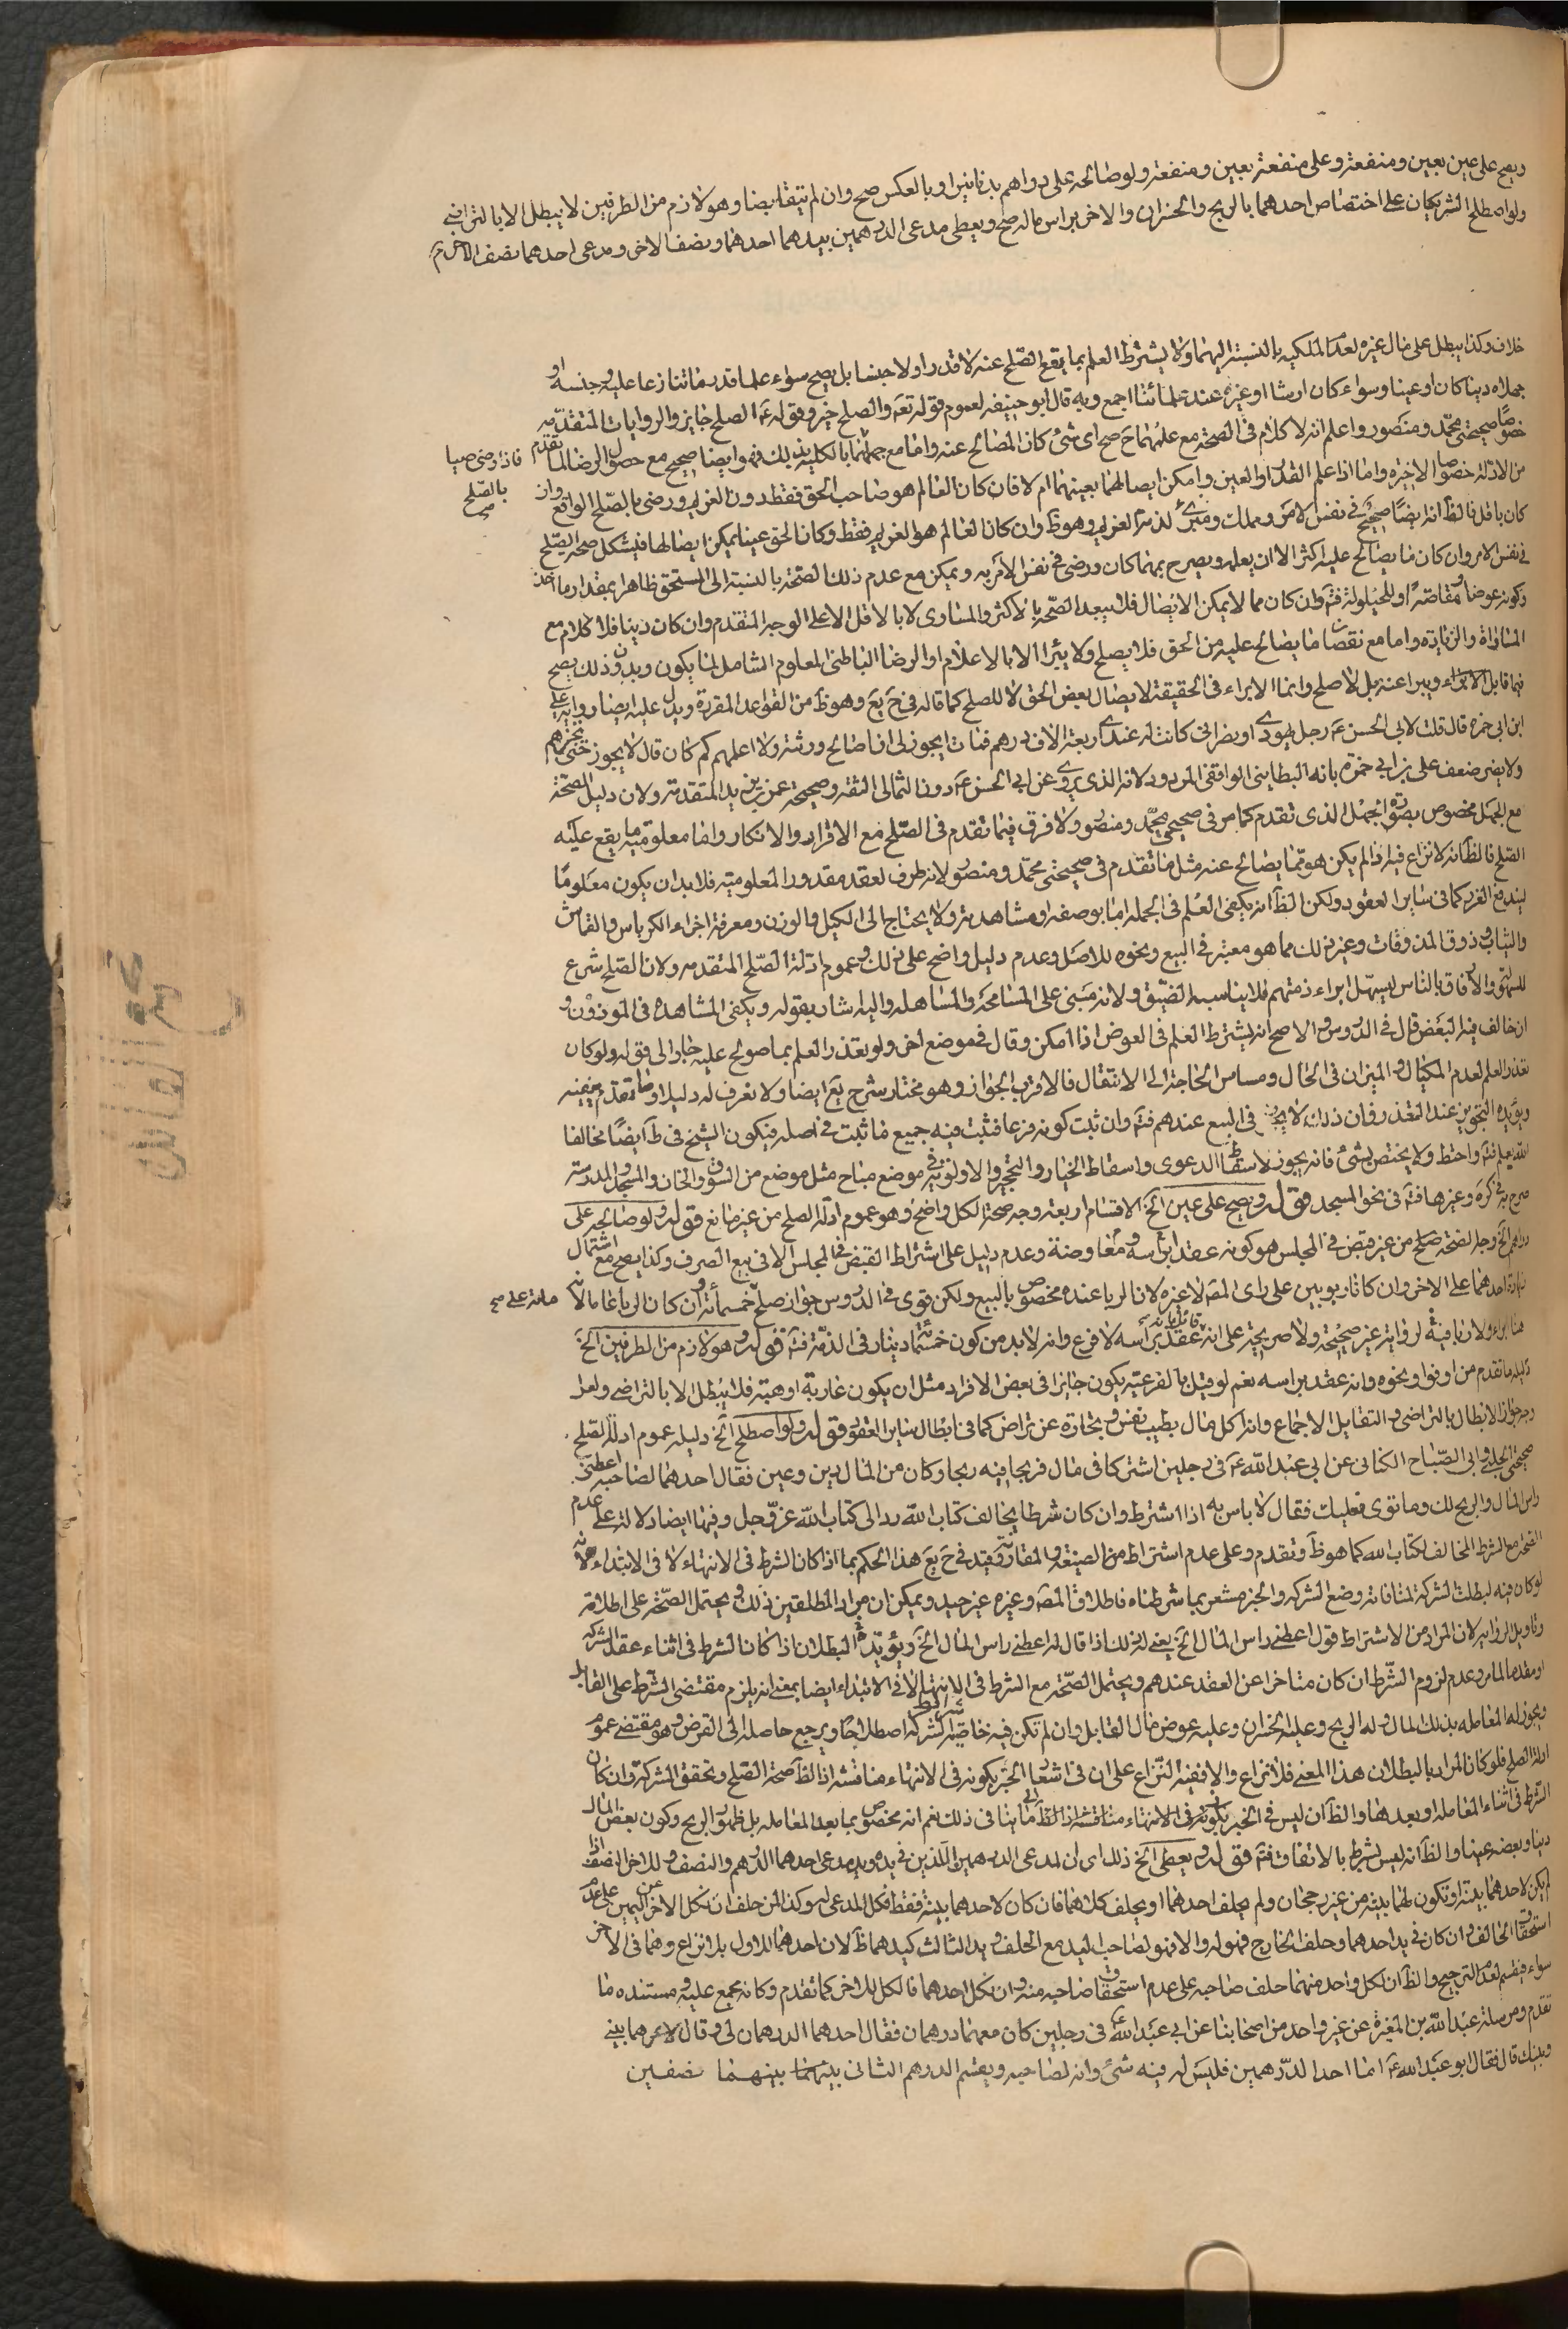 ويصح على عين بعين ومنفعة وعلى منفعة بعين ومنفعة ولو صالحه على دراهم بدنانير او بالعكس صح وان لم يتقابضا وهو لازم من الطرفين لا يبطل الا بالتراضى
ولو اصطلح الشريكان على اختصاص احدهما بالربح والخسران والاخر براس ماله صح ويعطى مدعى الدرهمين بيدهما احدهما ونصف الاخر ومدعى احدهما نصف الاخر
خلاف وكذا يبطل على مال غيره لعدم الملكيه بالنسبة اليهما ولا يشترط العلم بما يقع الصلح عنه لا قدرا ولا جنسا بل يصح سواء علما قدر ما تنازعا عليه وجنسه او
جهلاه دينا كان او عينا وسواء كان ارشا او غيره عند علمائنا اجمع وبه قال ابو حنيفه لعموم قوله تعه والصلح خير وقوله عه الصلح جايز والروايات المتقدمه
خصوصا صحيحتى محمد ومنصور واعلم انه لا كلام فى الصحة مع علمهما ح صح اى شئ كان المصالح عنه واما مع جهالتهما بالكلية بذلك فهو ايضا صحيح مع حصول الرضا لما تقدم
من الادلة خصوصا الاخيره واما اذا علم القدر او العين وامكن ايصالهما بعينهما ام لا فان كان العالم هو صاحب الحق فقط دون الغريم ورضى بالصلح الواقع وان
فاذا رضى صبيا
بالصلح
صح
كان باقل فالظ انه ايضا صحيح فى نفس الامر ومملك ومبرئ لذمة الغريم وهو ظ وان كان العالم هو الغريم فقط وكان الحق عينا يمكن ايصالها فيشكل صحة الصلح
فى نفس الامر وان كان ما يصالح عليه اكثر الا ان يعلمه ويصرح بمهما كان ورضى فى نفس الامر به ويمكن مع عدم ذلك الصحة بالنسبة الى المستحق ظاهرا بمقدار ما اخذ
وكونه عوضا ومقاصة او للحيلولة فتم وان كان مما لا يمكن الايصال فلا يبعد الصحة بالاكثر والمساوى لا بالاقل الا على الوجه المتقدم وان كان دينا فلا كلام مع
المساواة والزيادة واما مع نقصان ما يصالح عليه من الحق فلا يصلح ولا يبرا الا بالاعلام او الرضا الباطنى المعلوم الشامل لما يكون وبدون ذلك يصح
فيما قابل الابراء ويبرا عنه بل لا صلح وانما الابراء فى الحقيقة لايصال بعض الحق لا للصلح كما قاله فى ح يع وهو ظ من القواعد المقررة ويدل عليه ايضا رواية على
ابن ابى حمزه قال قلت لابى الحسن عه رجل يهودى او نصرانى كانت له عندى اربعة الاف درهم فمات ايجوز لى ان اصالح ورثته ولا اعلمهم كم كان قال لا يجوز حتى تخبرهم
ولا يضر ضعف على بن ابى حمزه بانه البطاينى الواقفى المردود لانه الذى يروى عن ابى الحسن عه دون الثمالى الثقه وصحيحة عمر بن يزيد المتقدمة ولان دليل الصحة
مع الجهل مخصوص بصورة الجهل الذى تقدم كما مر فى صحيحى محمد ومنصور ولا فرق فيما تقدم فى الصلح مع الاقرار والانكار واما معلومية ما يقع عليه
الصلح فالظ انه لا نزاع فيه اذا لم يكن هو مما يصالح عنه مثل ما تقدم فى صحيحتى محمد ومنصور لانه طرف لعقد مقدور المعلومية فلا بد ان يكون معلوما
ليندفع الغرر كما فى ساير العقود ولكن الظ انه يكفى العلم فى الجمله اما بوصفه او مشاهدته ولا يحتاج الى الكيل والوزن ومعرفة اجزاء الكرباس والقماش
والثياب وذوق المذوقات وغير ذلك مما هو معتبر فى البيع ونحوه للاصل وعدم دليل واضح على ذلك وعموم ادلة الصلح المتقدمه ولان الصلح شرع
للسهولة والارفاق بالناس ليسهل ابراء ذمتهم فلا يناسبه الضيق ولانه مبنى على المسامحة والمساهله واليه اشار بقوله ويكفى المشاهدة فى الموزون و
ان خالف فيه البعض قال فى الدروس والاصح انه يشترط العلم فى العوض اذا امكن وقال فى موضع اخر ولو تعذر العلم بما صولح عليه جاز الى قوله ولو كان
تعذر العلم لعدم المكيال والميزان فى الحال ومساس الحاجة الى الانتقال فالاقرب الجواز وهو مختار شرح يع ايضا ولا نعرف له دليلا وما تقدم ينفيه
ويؤيده التجويز عند التعذر فان ذلك لا يجوز فى البيع عندهم فتم وان ثبت كونه فرعا فثبت فيه جميع ما ثبت فى اصله فيكون الشيخ فى ط ايضا مخالفا
الله يعلم فتم واحتط ولا يختص بشئ فانه يجوز لاسقاط الدعوى واسقاط الخيار والتحجير والاولوية فى موضع مباح مثل موضع من السوق والخان والمسجد والمدرسة
صرح به فى كره وغيرها فتم فى نحو المسجد قوله ويصح على عين الخ الاقسام اربعة وجه صحة الكل واضح وهو عموم ادلة الصلح من غير مانع قوله ولو صالحه على
دراهم الخ وجه الصحة صلح من غير قبض فى المجلس هو كونه عقدا براسه ومعاوضة وعدم دليل على اشتراط القبض فى المجلس الا فى بيع الصرف وكذا يصح مع اشتمال
زيادة احدهما على الاخر وان كانا ربويين على راى المصه لا غيره لان الربا عنده مخصوص بالبيع ولكن قوى فى الدروس جواز صلح خمسمائة وان كان الربا عاما لانه
مائة على صح
هنا ابراء ولا ربا فيه لرواية غير صحيحة ولا صريحة على انه عقد براسه لا فرع وانه لا بد من كون خمسمائة دينار فى الذمة فتم قوله وهو لازم من الطرفين الخ
دليله ما تقدم من اوفوا ونحوه وانه عقد براسه نعم لو قيل بالفرعية يكون جايزا فى بعض الافراد مثل ان يكون عارية او هبة فلا يبطل الا بالتراضى ولعل
وجه جواز الابطال بالتراضى والتقايل الاجماع وانه اكل مال بطيب نفس وتجارة عن تراض كما فى ابطال ساير العقود قوله ولو اصطلح الخ دليله عموم ادلة الصلح
صحيحة الحلبى وابى الصباح الكنانى عن ابى عبد الله عه فى رجلين اشتركا فى مال فربحا فيه ربحا وكان من المال دين وعين فقال احدهما لصاحبه اعطنى
راس المال والربح لك وما توى فعليك فقال لا باس به اذا اشترط وان كان شرطا يخالف كتاب الله رد الى كتاب الله عز وجل وفيها ايضا دلالة على عدم
الصحة مع الشرط المخالف لكتاب الله كما هو ظ وتقدم وعلى عدم اشتراط من الصيغة والمقارنة وقيد فى ح يع هذا الحكم بما اذا كان الشرط فى الانتهاء لا فى الابتداء لانه
لو كان فيه لبطلت الشركة لمنافاته وضع الشركه والخبر مشعر بما شرطناه فاطلاق المصه وغيره غير جيد ويمكن ان مراد المطلقين ذلك ويحتمل الصحة على اطلاقه
وتاويل الرواية لان المراد من الاشتراط قول اعطنى راس المال الخ يعنى له ذلك اذا قال له اعطنى راس المال الخ ويؤيده البطلان اذا كان الشرط فى اثناء عقد الشركه
او مقدما لما مر وعدم لزوم الشرط ان كان متاخرا عن العقد عندهم ويحتمل الصحة مع الشرط فى الانتهاء لا فى الابتداء ايضا بمعنى انه يلزم مقتضى الشرط على القابل
ويجوز له المعامله بذلك المال وله الربح وعليه الخسران وعليه عوض مال القابل وان لم تكن فيه خاصية الشركه اصطلاحا ويرجع حاصله الى القرض وهو مقتضى عموم
ادلة الصلح فلو كان المراد بالبطلان هذا المعنى فلا نزاع والا ففيه النزاع على ان فى اشعار الخبر بكونه فى الانتهاء مناقشه اذ الظ صحة الصلح وتحقق الشركة وان كان
الشرط فى اثناء المعامله او بعدها والظ ان ليس فى الخبر ما ينافى ذلك نعم انه مخصوص بما بعد المعامله بل ظهور الربح وكون بعض المال
دينا وبعضه عينا والظ انه ليس بشرط بالاتفاق فتم قوله ويعطى الخ ذلك اى ان لمدعى الدرهمين اللذين فى يده ويد مدعى احدهما الدرهم والنصف وللاخر النصف اذا
لم يكن لاحدهما بينة او تكون لهما بينه من غير رجحان ولم يحلف احدهما او يحلف كلاهما فان كان لاحدهما بينة فقط فكل المدعى له وكذا لمن حلف ان نكل الاخر عن اليمين على عدم
استحقاق الحالف وان كان فى يد احدهما وحلف الخارج فهو له والا فهو لصاحب اليد مع الحلف ويد الثالث كيدهما ظ لان احدهما للاول بلا نزاع وهما فى الاخر
سواء فيقسم لعدم الترجيح والظ ان لكل واحد منهما حلف صاحبه على عدم استحقاق صاحبه منه وان نكل احدهما فالكل للاخر كما تقدم وكانه مجمع عليه ومستنده ما
تقدم ومرسلة عبد الله بن المغيرة عن غير واحد من اصحابنا عن ابى عبد الله عه فى رجلين كان معهما درهمان فقال احدهما الدرهمان لى وقال الاخر هما بينى
وبينك قال فقال ابو عبد الله عه اما احد الدرهمين فليس له فيه شئ وانه لصاحبه ويقسم الدرهم الثانى بينهما بينهما نصفين